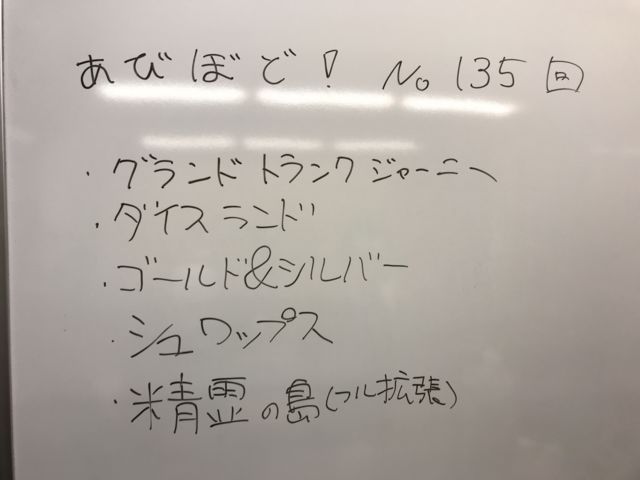 あびぼど! No 135回
・グランドトランクジャーニー
・ダイスランド
・ゴールド&シルバー
・シュワップス
・精霊の島(フル拡張)